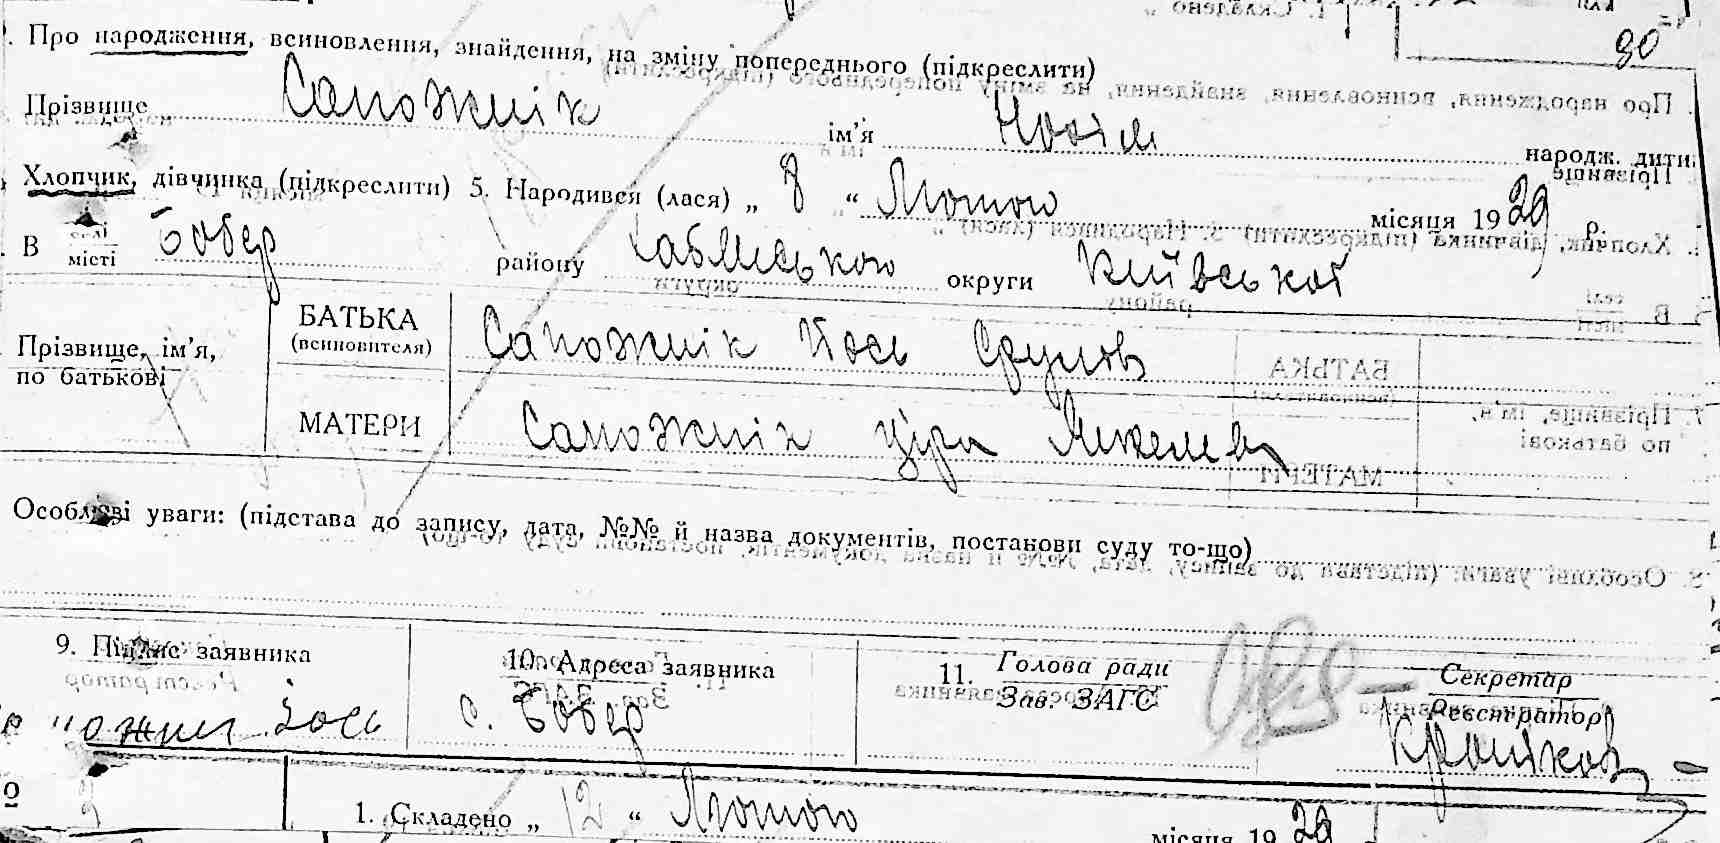 1. Складено „
30
. Про народження, всиновлення, знайдення, на зміну попереднього (підкреслити)
Прізвище Сапожнік ім’я Носім народж. дити
Хлопчик, дівчинка (підкреслити) 5. Народився (лася) „ 8 “ Лютого місяця 1929 р.
В селі/місті Бобер району округи Київської
Прізвище, ім’я, по батькові
БАТЬКА (всиновителя) Сапожнік Йось Срулів
МАТЕРИ Сапожнік Ціря
Особливі уваги: (підстава до запису, дата, №№ й назва документів, постанови суду то-що)
9. Підпис заявника 10. Адреса заявника 11. Голова ради Секретар
Зав. ЗАГС Реєстратор
с. Бобер
1. Складено „ 12 “ Лютого місяця 1929